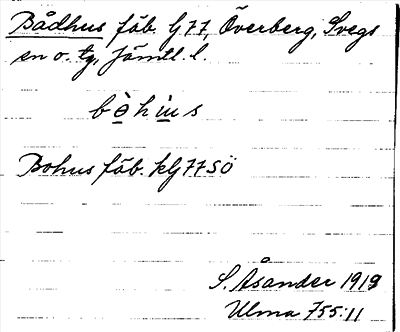 Bådhus fäb. G 77, Överberg, Svegs
sn o. tg, Jämtl. l.
bòhùs
Bohus fäb. kG77SÖ
S. Åsander 1919
Ulma 755:11